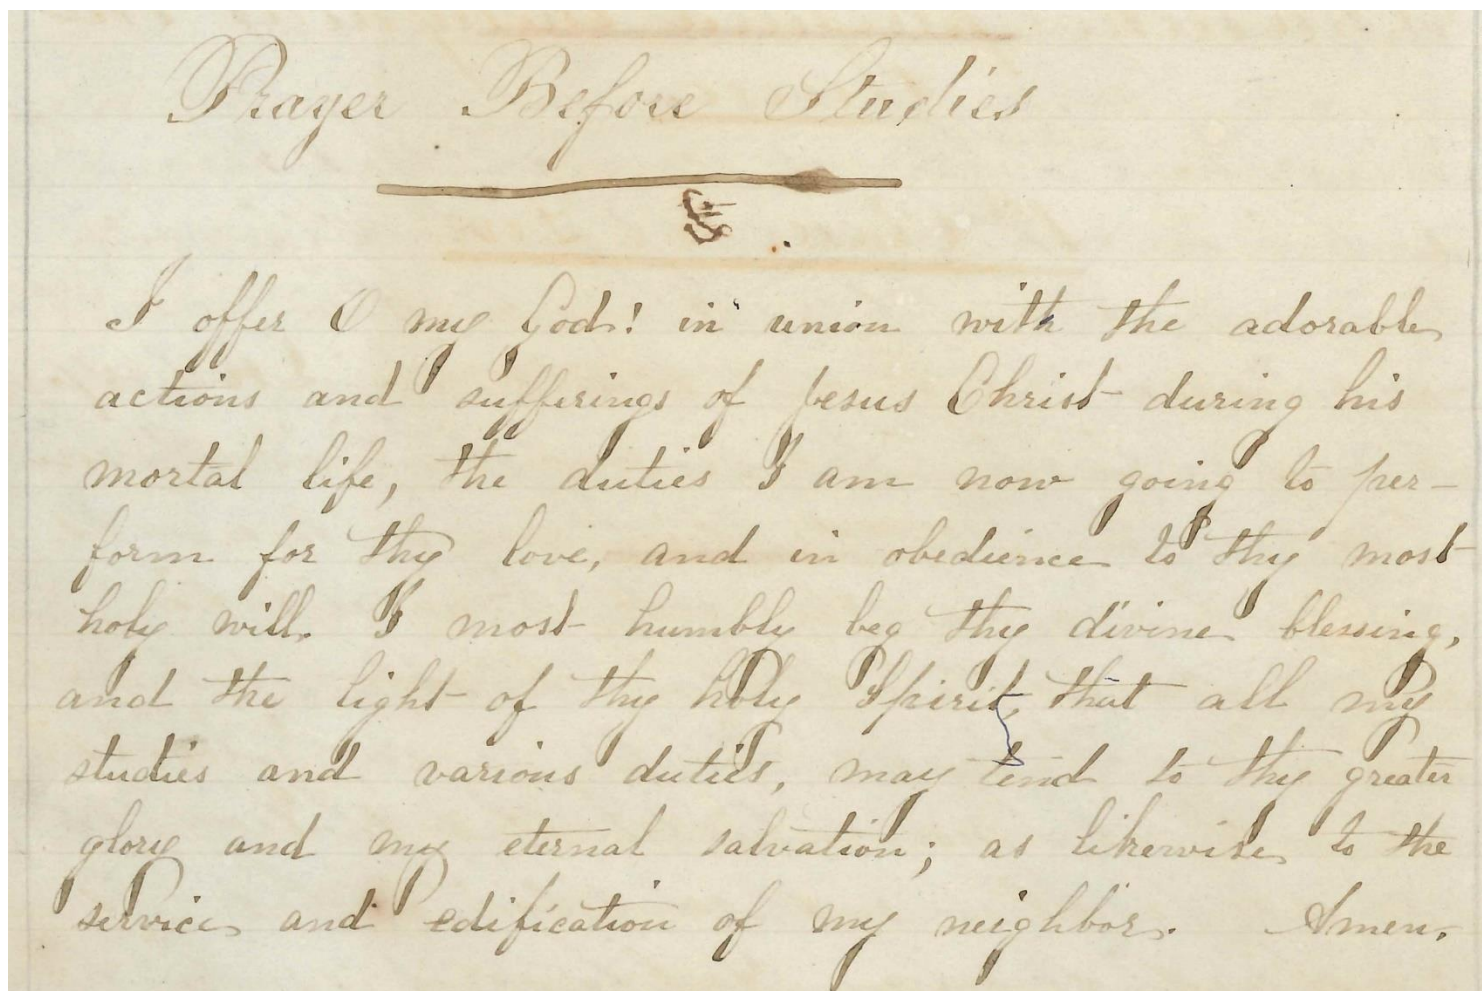 Prayer Before Studies
I offer O my God! in union with the adorable
actions and sufferings of Jesus Christ during his
mortal life, the duties I am now going to per-
form for thy love, and in obedience to thy most
holy will. I most humbly beg thy divine blessing,
and the light of thy holy Spirit, that all my
studies and various duties, may tend to thy greater
glory and my eternal salvation; as likewise to the
service and edification of my neighbor. Amen.